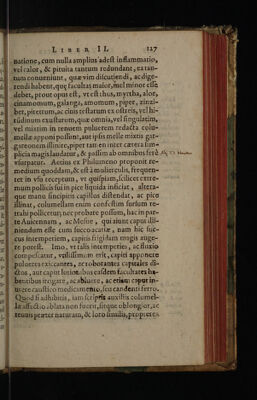 LIBER II. 127
natione, cum nulla amplius adest inflammatio,
vel calor, & pituita tantum redundant, ea tan-
tum conueniunt, quæ vim discutiendi, ac dige-
rendi habent, quæ facultas maior, vel minor esse
debet, prout opus est, vt est thus, myrrha, aloe,
cinamomum, galanga, amomum, piper, zinzi-
ber, piretrum, ac cinis testarum ex ostreis, vel hi-
rudinum exustarum, quæ omnia, vel singulatim,
vel mixtim in tenuem puluerem redacta colu-
mellæ apponi possunt, aut ipsis melle mixtis gar-
gareonem illinire, piper tamen inter cætera sim-
plicia magis laudatur, & passim ab omnibus ferè
vsurpatur. Aetius ex Philumeno proponit re-
medium quoddam, & est à mulierculis, frequen-
ter in vsu receptum, vt quispiam, scilicet extre-
mum pollicis sui in pice liquida inficiat, altera-
que manu sincipitis capillos distendat, ac pice
illinat, columellam enim consestim sursum re-
trahi pollicetur, nec probare possum, hac in par-
te Auicennam, ac Mesue, qui aiunt caput illi-
niendum esse cum succo acatiæ, nam hic suc-
cus intemperiem, capitis frigidam magis auge-
re potest. Imo, vt talis intemperies, ac fluxio
compescatur, vtilissimum erit, capiti apponere
pulueres exiccantes, ac roborantes capitalis di-
ctos, aut caput lotionibus easdem facultates ha-
bentibus irrigare, ac abluere, ac etiam caput in-
urere caustico medicamento, seu candenti ferro.
Quod si adhibitis, iam scriptis auxiliis columel-
læ affectio ablata non fuerit, sitque oblongior, ac
tenuis præter naturam, & loro similis, propterea